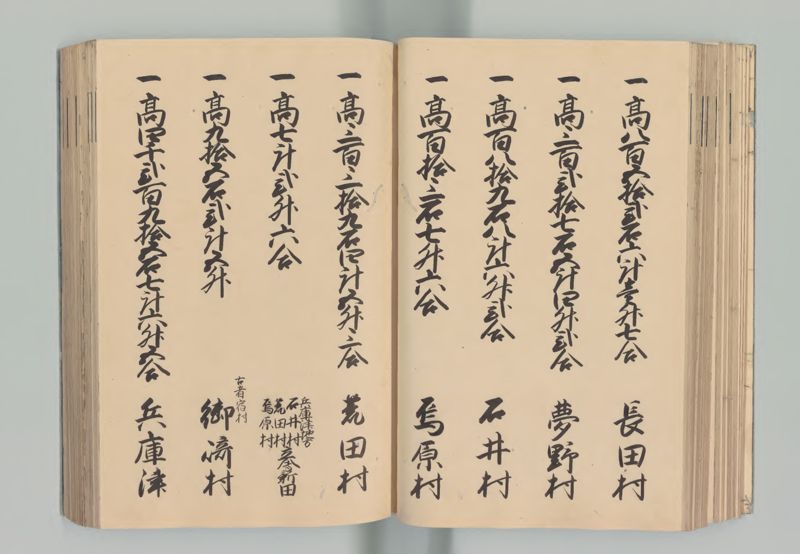 一高八百五拾弐石六斗壱升七合 長田村
一高三百弐拾七石五斗四升弐合 夢野村
一高百八拾九石八斗六升弐合 石井村
一高百拾三石七升六合 烏原村
一高三百三拾九石四斗五升三合 荒田村
一高七斗弐升六合
兵庫津地方
石井村
荒田村
烏原村
新田
一高九拾五石弐斗五升
古者宿村
御崎村
一高四千弐百九拾五石七斗六升五合 兵庫津